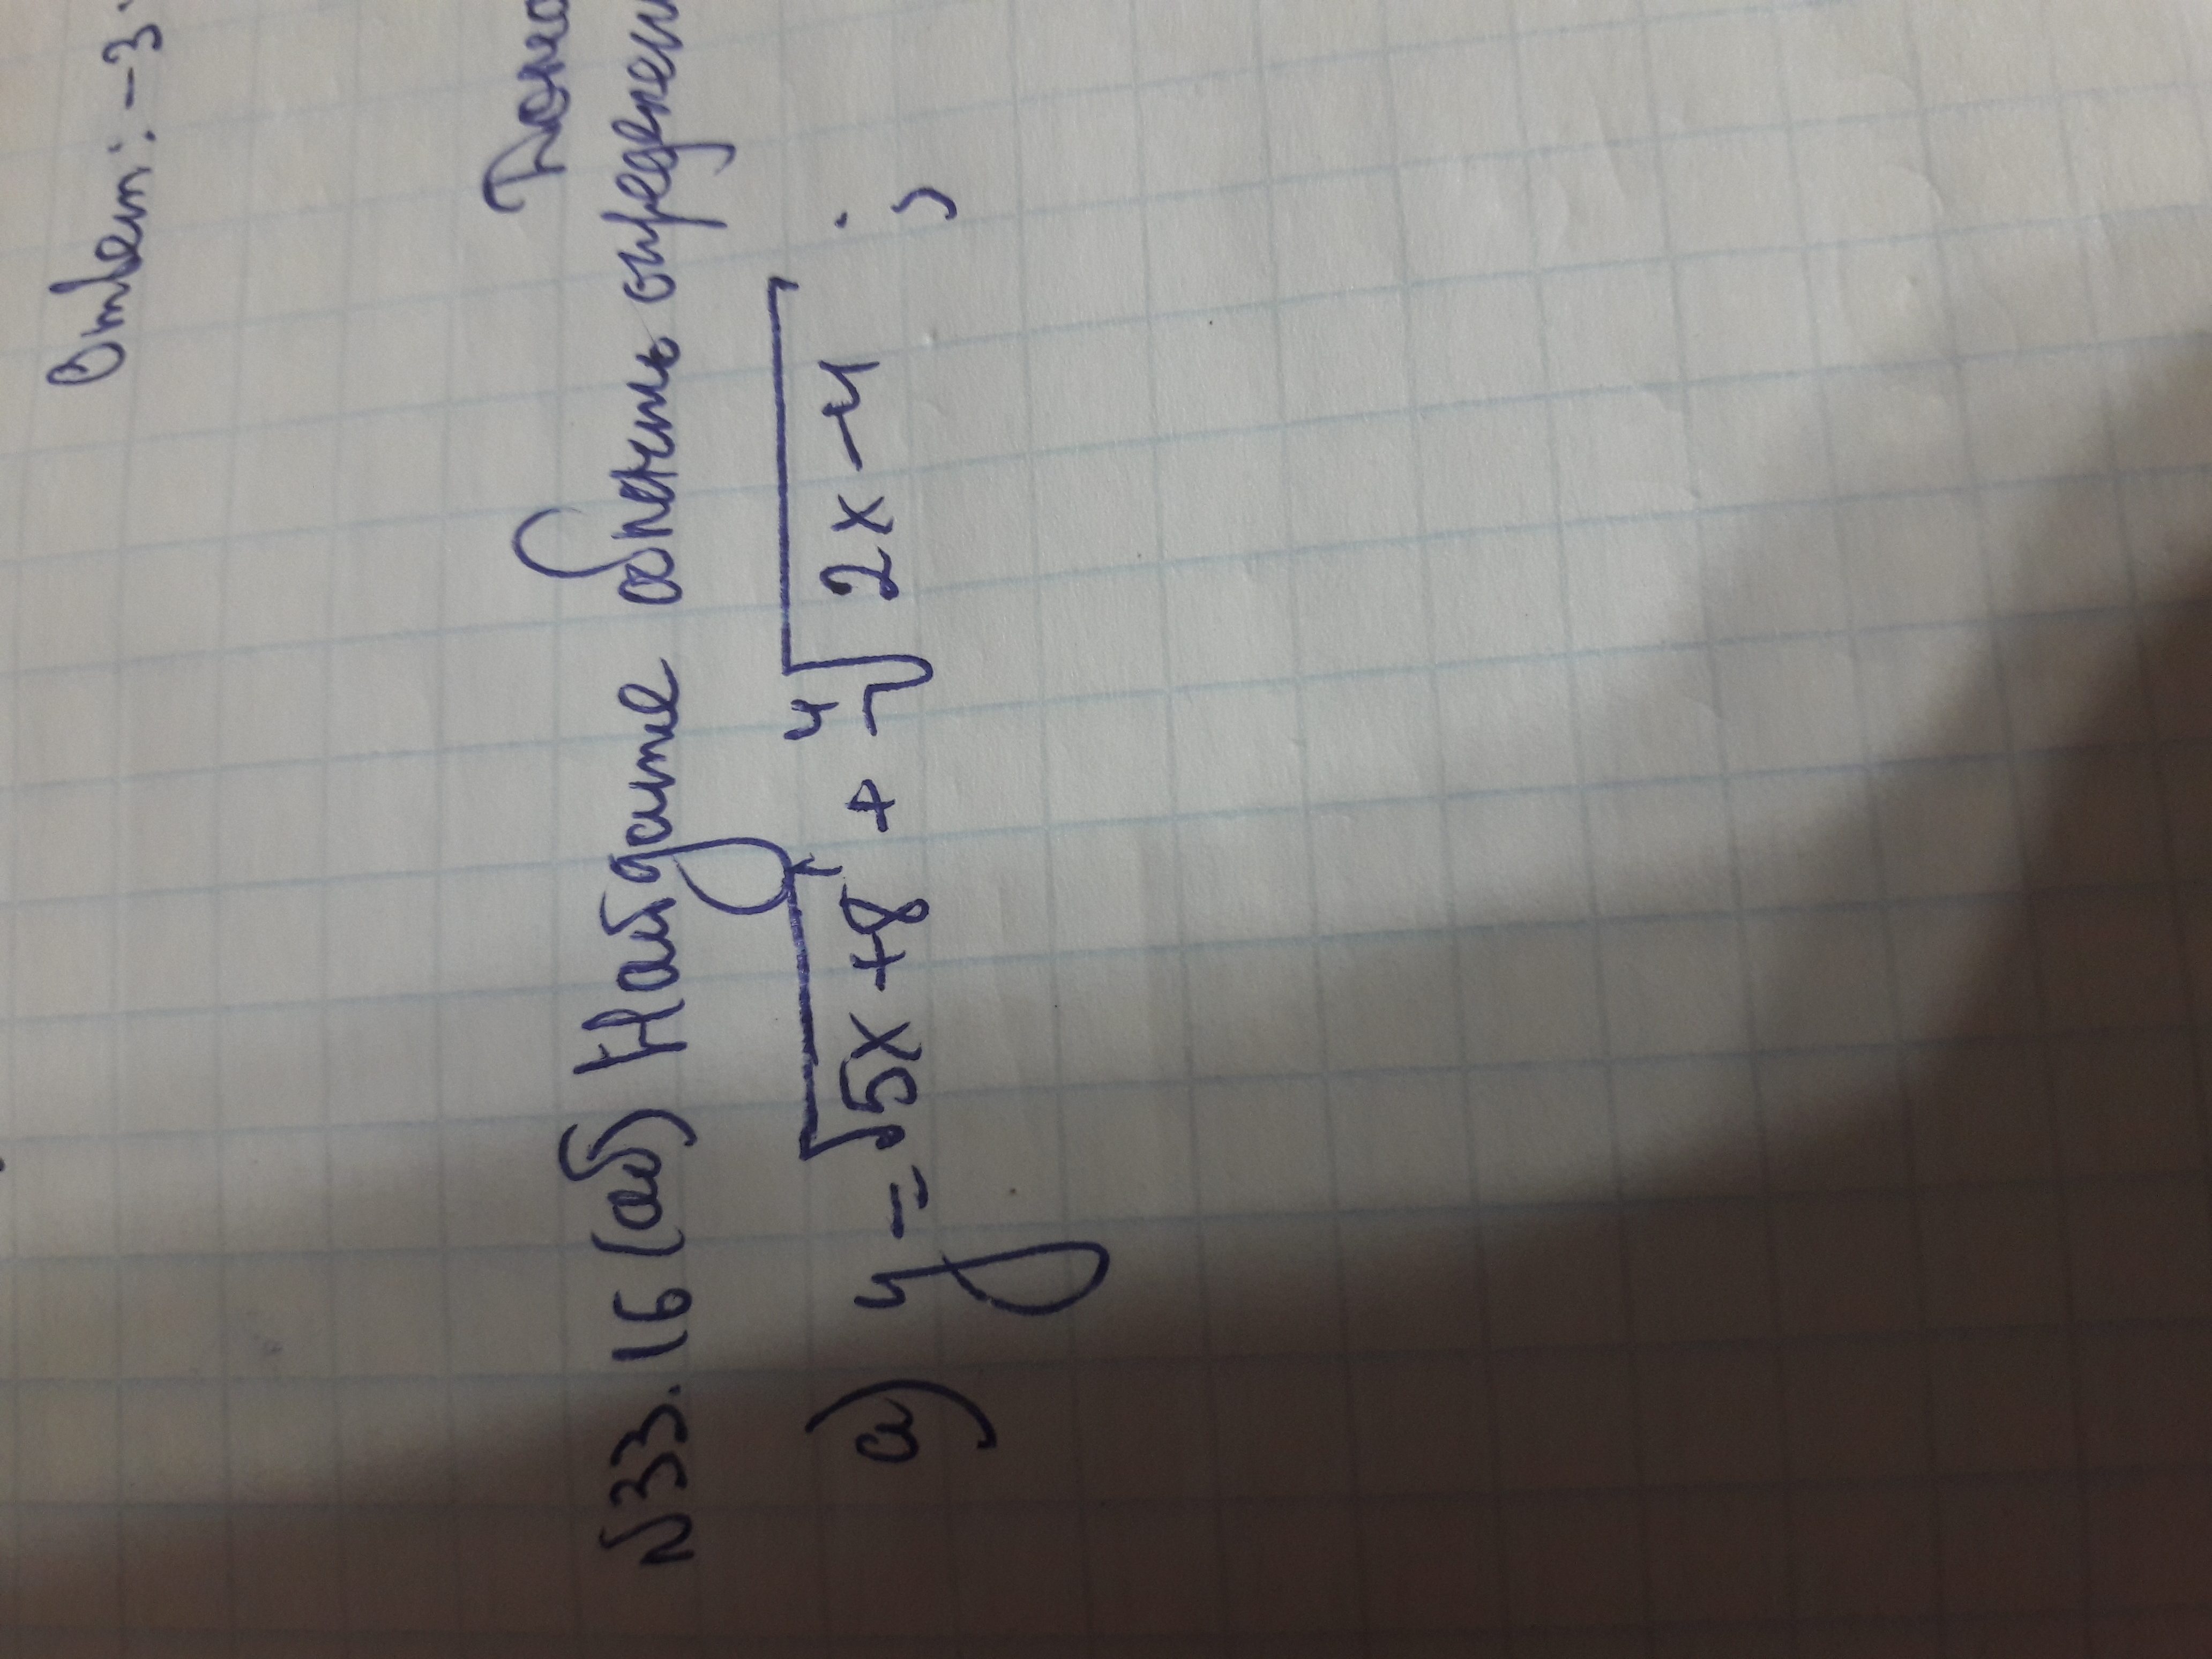 Ответ: -3
№33.16 (аб) Найдите область определен
а) y = √5x+8 + ⁴√2x-4 ;